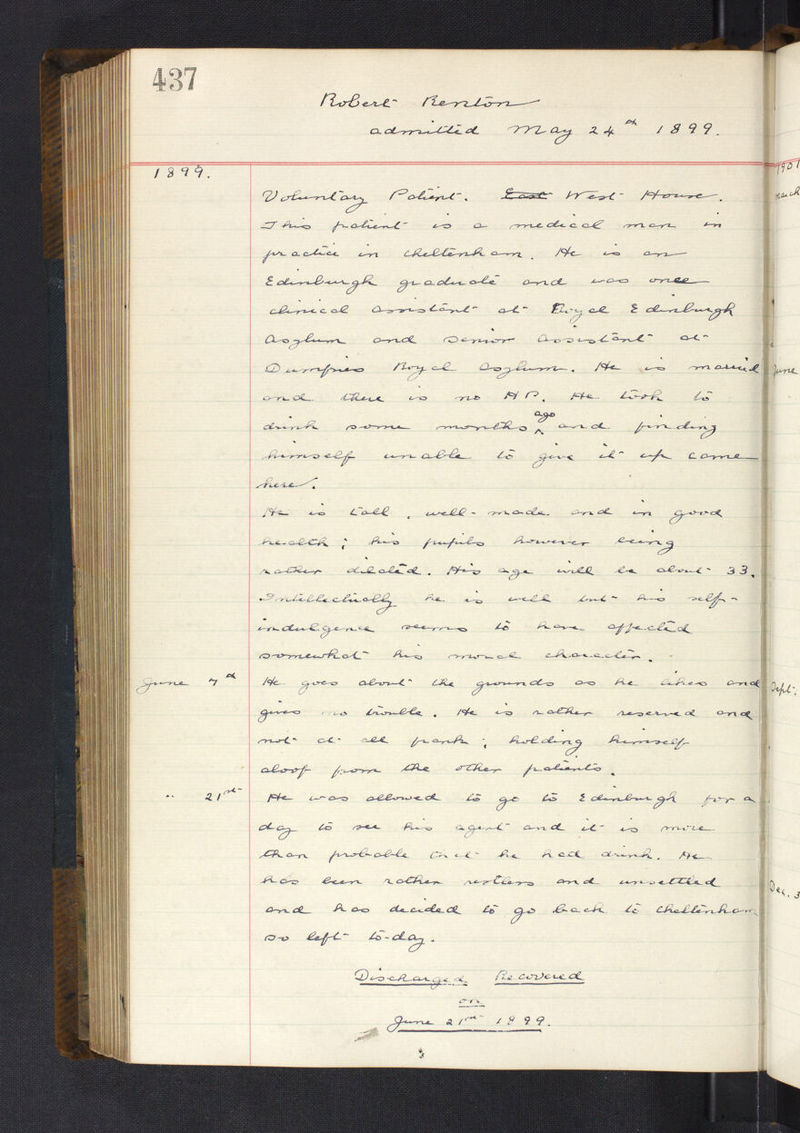 437
Robert Renton
admitted May 24th 1899.
1899.
Voluntary Patient. East West House.
This patient is a medical man in
practice in Cheltenham. He is an
Edinburgh graduate and was once
clinical assistant at Royal Edinburgh
Asylum and senior assistant at
Dumfries Royal Asylum. He is married
and there is no HP. He took to
drink some months ago and finding
himself unable to give it up came
here.
He is tall, well-made and in good
health; his pupils however being
rather dilated. His age will be about 33.
Intellectually he is well but his self-
indulgence seems to have affected
somewhat his moral character.
June 7th He goes about the grounds as he likes and
gives no trouble. He is rather reserved and
not at all frank; holding himself
aloof from the other patients.
" 21st He was allowed to go to Edinburgh for a
day to see his agent and it is more
than probable that he had drink. He
has been rather restless and unsettled
and has decided to go back to Cheltenham
so left to-day.
Discharged Recovered
on
June 21st 1899.
1901
March
June
Sept.
Dec. 3